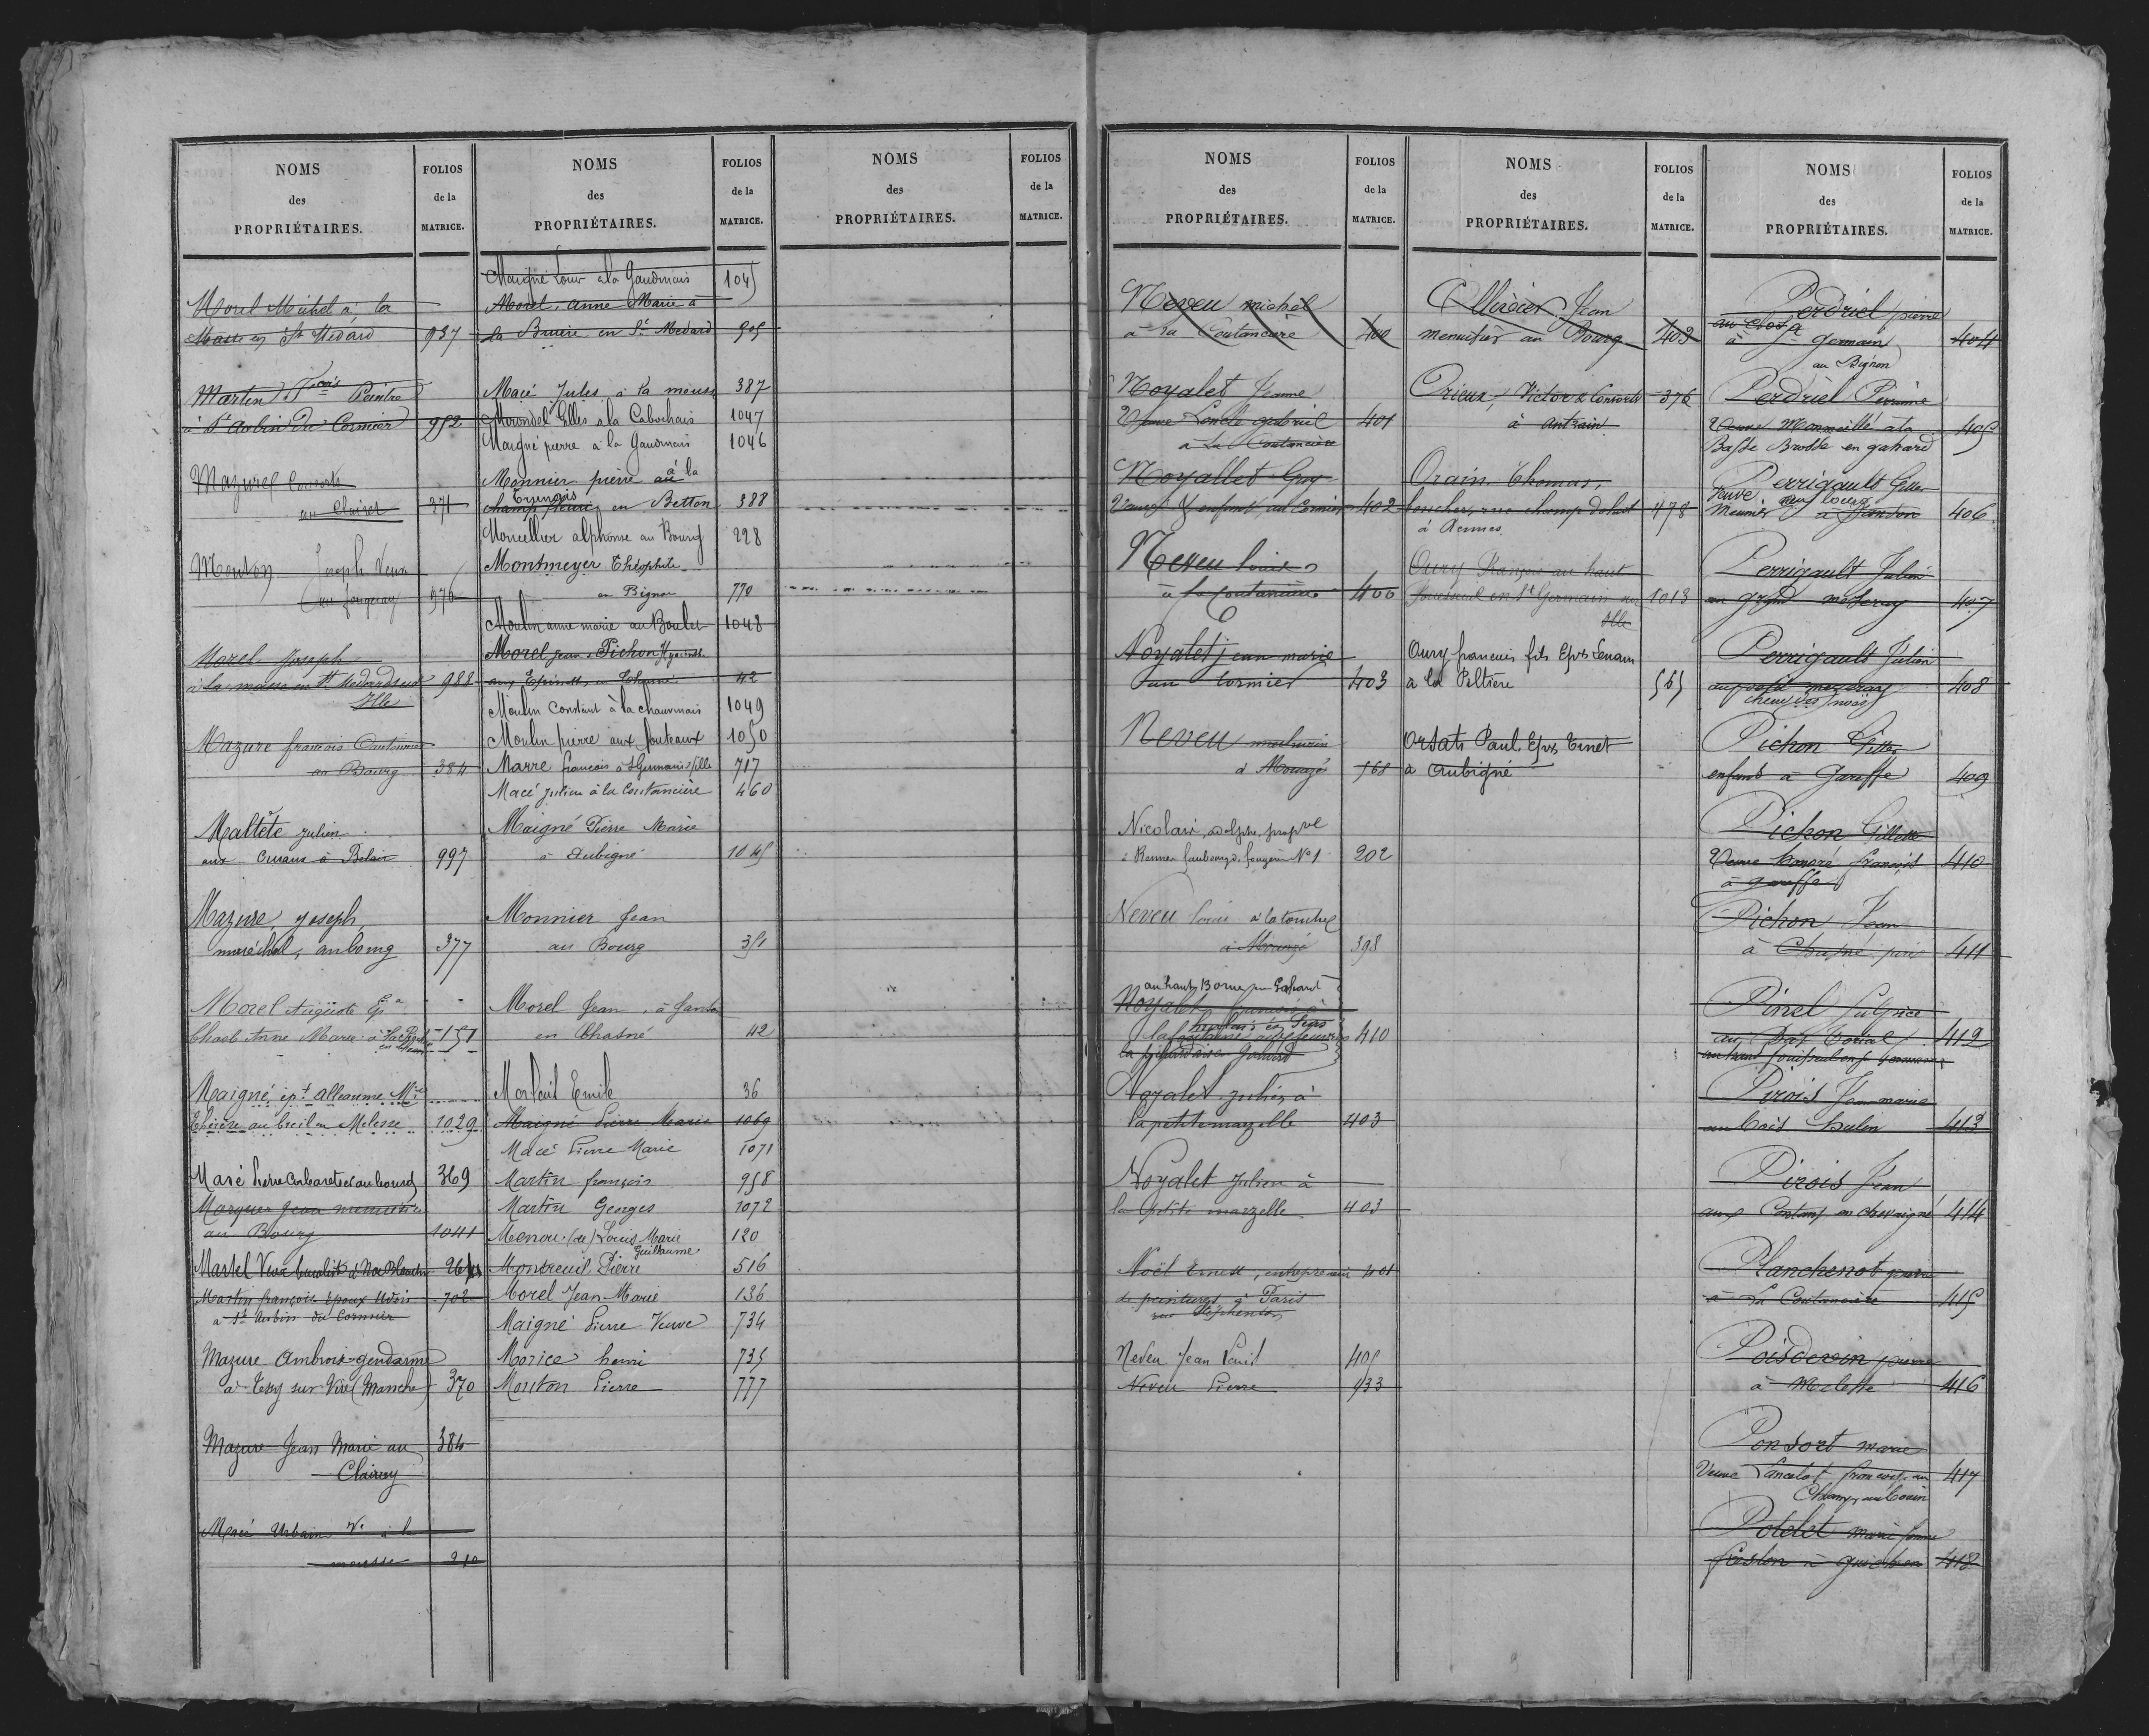 NOMS
des
PROPRIÉTAIRES.
FOLIOS
de la
MATRICE.
Morel Michel à la
Masse en St Médard 937
Martin Fçois Peintre
à St Aubin du Cormier 952
Mazure Consorts
au Clairet 371
Mouton Joseph Veuve
au fougeray 376
Morel Joseph
à la masse en St Medard sur 988
Ille
Mazure francois Cantonnier
au Bourg 384
Maltête Julien
aux à Belair 997
Mazure, Joseph,
maréchal, au bourg 377
Morel Auguste Ep
Anne Marie à 151
Maigné, épt Alleaume Mie
Thérèse au breil en Melesse 1029
Macé Pierre Cabaretier au bourg 369
Marquer Jean menuisier
au Bourg 1041
Martel Veuve 964
Martin françois Epoux 702
à St Aubin du Cormier
Mazure Ambroise gendarme
à Tessy sur Vire (Manche) 370
Mazure Jean Marie au 384
Clairay
Macé Urbain Ve à la
mousse 210
NOMS
des
PROPRIÉTAIRES.
FOLIOS
de la
MATRICE.
Maigné Louis à la Gaudinais 1045
Morel, Anne Marie à
la Bruière en St Medard 505
Macé Jules à la mousse 387
Morondel Gilles à la Cabochais 1047
Maigné pierre à la Gaudinais 1046
Monnier pierre à la
champ fleury en Betton 388
Moncellier alphonse au Bourg 228
Montmeyer Théophile
au Bignon 770
Moulin anne marie au Boulet 1048
Morel jean Pichon Hyacinthe
aux Epinette en Chasné 42
Moulin Constant à la chauvinais 1049
Moulin pierre aux fouteaux 1050
Marre francois à St Germain s/ille 717
Macé Julien à la Coutancière 460
Maigné Pierre Marie
à Aubigné 1045
Monnier Jean
au Bourg 351
Morel Jean, à
en Chasné 42
Morfait Emile 36
Maigné Pierre Marie 1069
Macé Pierre Marie 1071
Martin françois 958
Martin Georges 1072
Menou (de) Louis Marie 120
Guillaume
Montreuil Pierre 516
Morel Jean Marie 136
Maigné Pierre Veuve 734
Morice henri 735
Mouton Pierre 777
NOMS
des
PROPRIÉTAIRES.
FOLIOS
de la
MATRICE.
NOMS
des
PROPRIÉTAIRES.
FOLIOS
de la
MATRICE.
Neveu michel
à La Coutancière 400
Noyalet Jeanne
Veuve Loncle gabriel 401
à La Coutancière
Noyallet Guy
Veuve & enfants, au Cormier 402
Neveu louis
à la Coutancière 400
Noyalet jean marie
au Cormier 403
Neveu mathurin
à Mouazé 568
Nicolais, adolphe, propre
à Rennes faubourg de fougères No 1 202
Neveu louis à la touche
à Mouazé 398
au haut Borne en Gahard
Noyalet 410
Noyalet julien à
la petite marzelle 403
Noyalet Julien à
la petite marzelle 403
Noël Ernest, entrepreneur 401
de peintures à Paris
rue Stéphenson
Neveu Jean Louis 405
Neveu Pierre 933
NOMS
des
PROPRIÉTAIRES.
FOLIOS
de la
MATRICE.
Ollivier Jean
menuisier au Bourg 403
Orieux, Victor & Consorts 376
à Antrain
Orain Thomas,
boucher, rue champ dolent 478
à Rennes
Oury François au haut
fouteuil en St Germain sur 1013
Ille
Oury francois fils Epx Lenain
à la Peltière 565
Orsati Paul, Epx Ernet
à Aubigné
NOMS
des
PROPRIÉTAIRES.
FOLIOS
de la
MATRICE.
Perdriel pierre
à St germain 404
au Bignon
Perdriel Perrinne
Veuve Monneillé à la 405
Basse Brosse en gahard
Perrigault Gilles
veuve au bourg
Meunier à 406
Perrigault Julien
au grand mezeray 407
Perrigault Julien
au petit mezeray 408
Pichon Gilles
enfants à Gareffe 409
Pichon Gillette
Veuve honoré françois 410
à gareffe
Pichon Jean
à Chasné 411
Pinel Sulpice
au 412
Pirois Jean marie
au bois hulin 413
Pirois Jean
aux en chevaigné 414
Planchenot pierre
à La Coutancière 415
Poisdevin pierre
à Melesse 416
Ponsort marie
Veuve Lancelot francois, au 417
Champ au Couin
Potdet marie femme
freslon à guichen 418